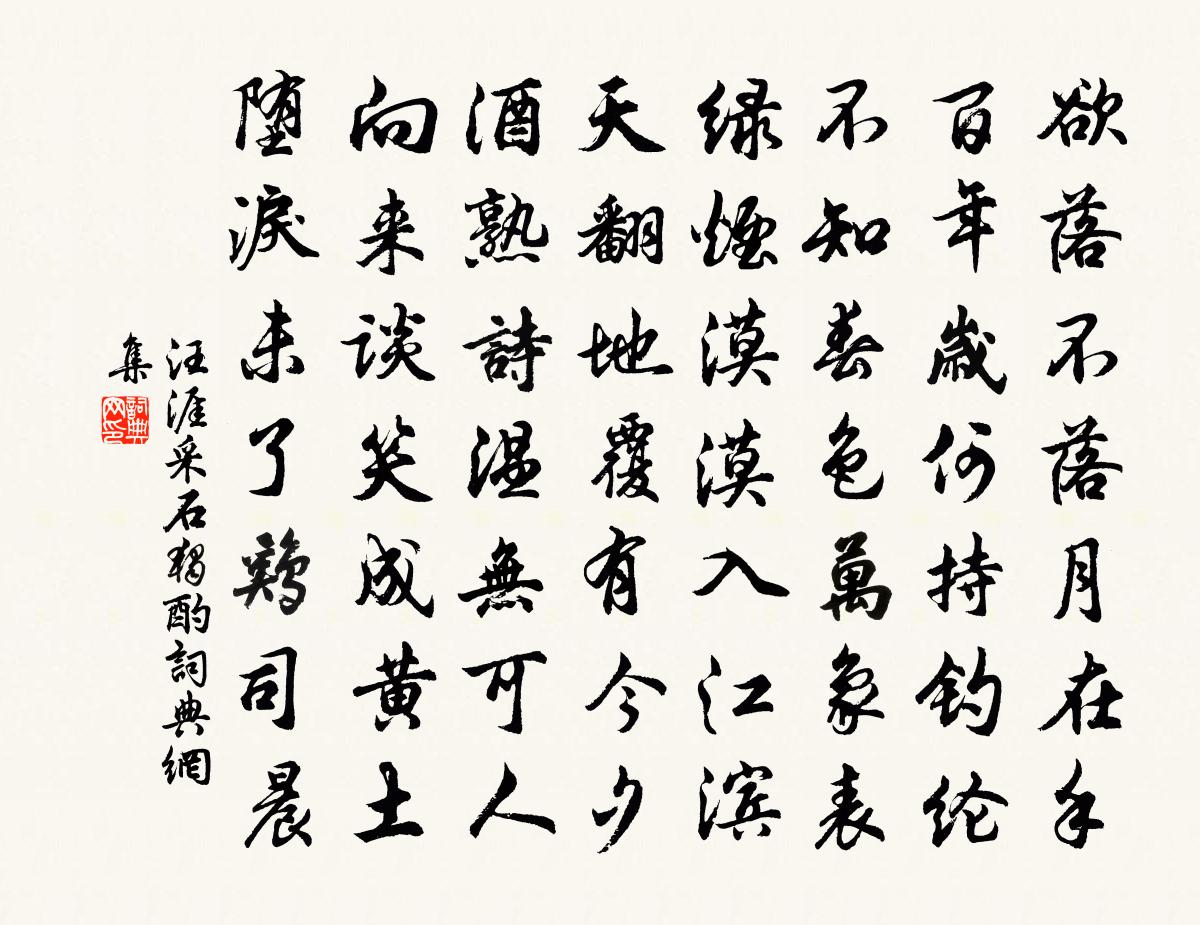 欲落不落月在手
百年歲何持钓纶
不知春色萬象表
绿煙漠漠入江滨
天翻地覆有今夕
酒熟詩温無可人
向来谈笑成黄土
堕淚未了鷄司晨
汪涯采石獨酌詞典網
集
詞典网印